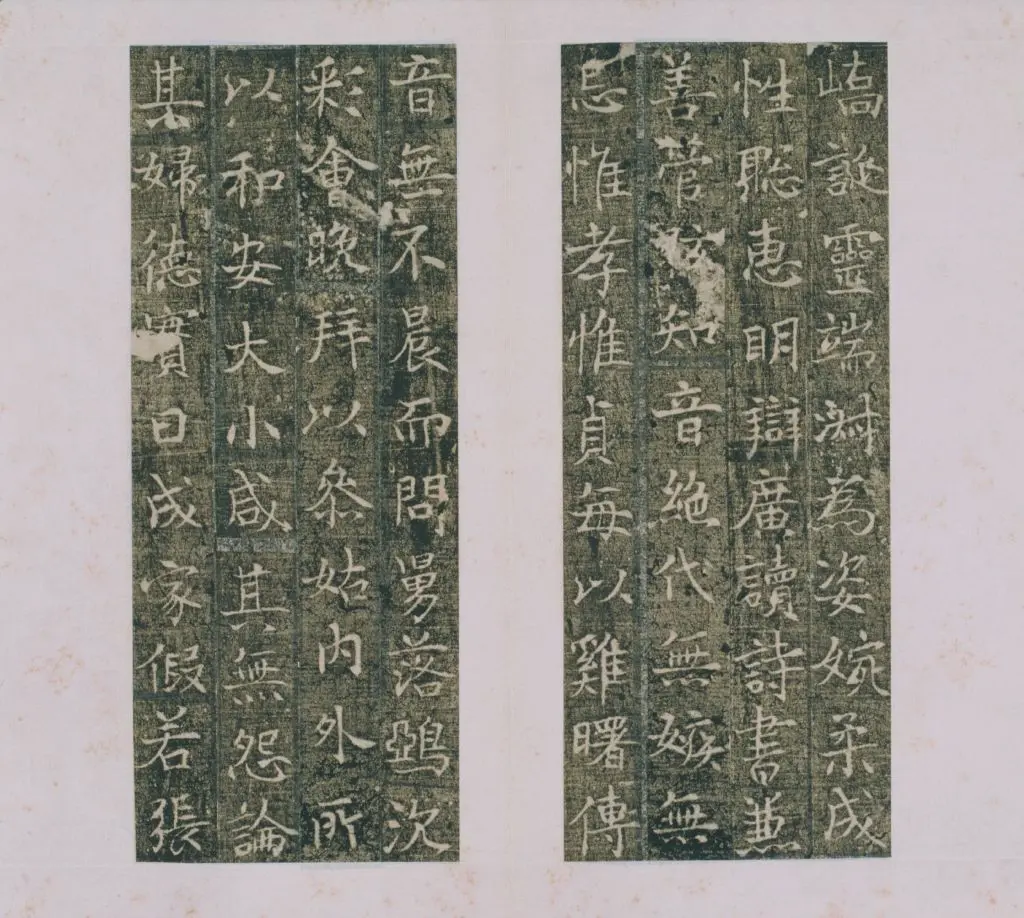 嶠誕靈端淑為姿婉柔成
性聡惠明辯廣讀詩書兼
善管絃知音絕代無嫉無
忌惟孝惟貞每以雞曙傳
音無不晨而問舅落鵶沈
彩會晚拜以叅姑內外所
以和安大小咸其無怨論
其婦德實曰成家假若張